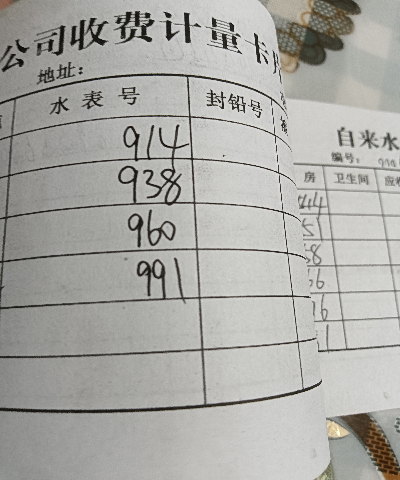 公司收费计量卡片
地址:
水表号 封铅号
914
938
960
991
自来水
编号:
房 卫生间 应收
44
51
58
66
76
1